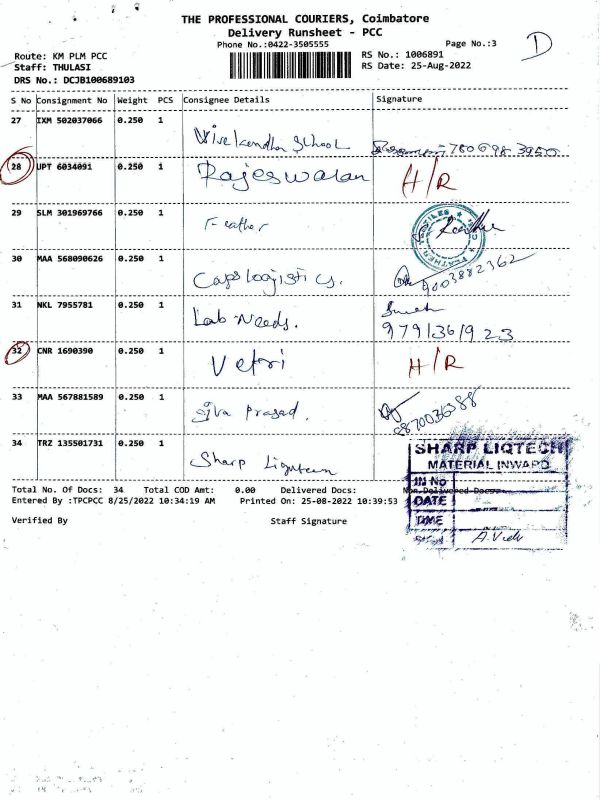 THE PROFESSIONAL COURIERS, Coimbatore
Delivery Runsheet - PCC
Phone No.:0422-3505555
Page No.:3
D
Route: KM PLM PCC
RS No.: 1006891
Staff: THULASI
RS Date: 25-Aug-2022
DRS No.: DCJB100689103
S No Consignment No Weight PCS Consignee Details Signature
27 IXM 502037066 0.250 1
28 UPT 6034091 0.250 1 Rajeswaran H/R
29 SLM 301969766 0.250 1 Feather
30 MAA 568090626 0.250 1 Caps logistics. 9003882362
31 NKL 7955781 0.250 1 Lab Needs. 9791361923
32 CNR 1690390 0.250 1 Vetri H/R
33 MAA 567881589 0.250 1 siva prasad.
34 TRZ 135501731 0.250 1 Sharp
SHARP LIQTECH
MATERIAL INWARD
IN No
DATE
TIME
Total No. Of Docs: 34 Total COD Amt: 0.00 Delivered Docs: Non Delivered Docs:
Entered By :TPCPCC 8/25/2022 10:34:19 AM Printed On: 25-08-2022 10:39:53
Verified By Staff Signature